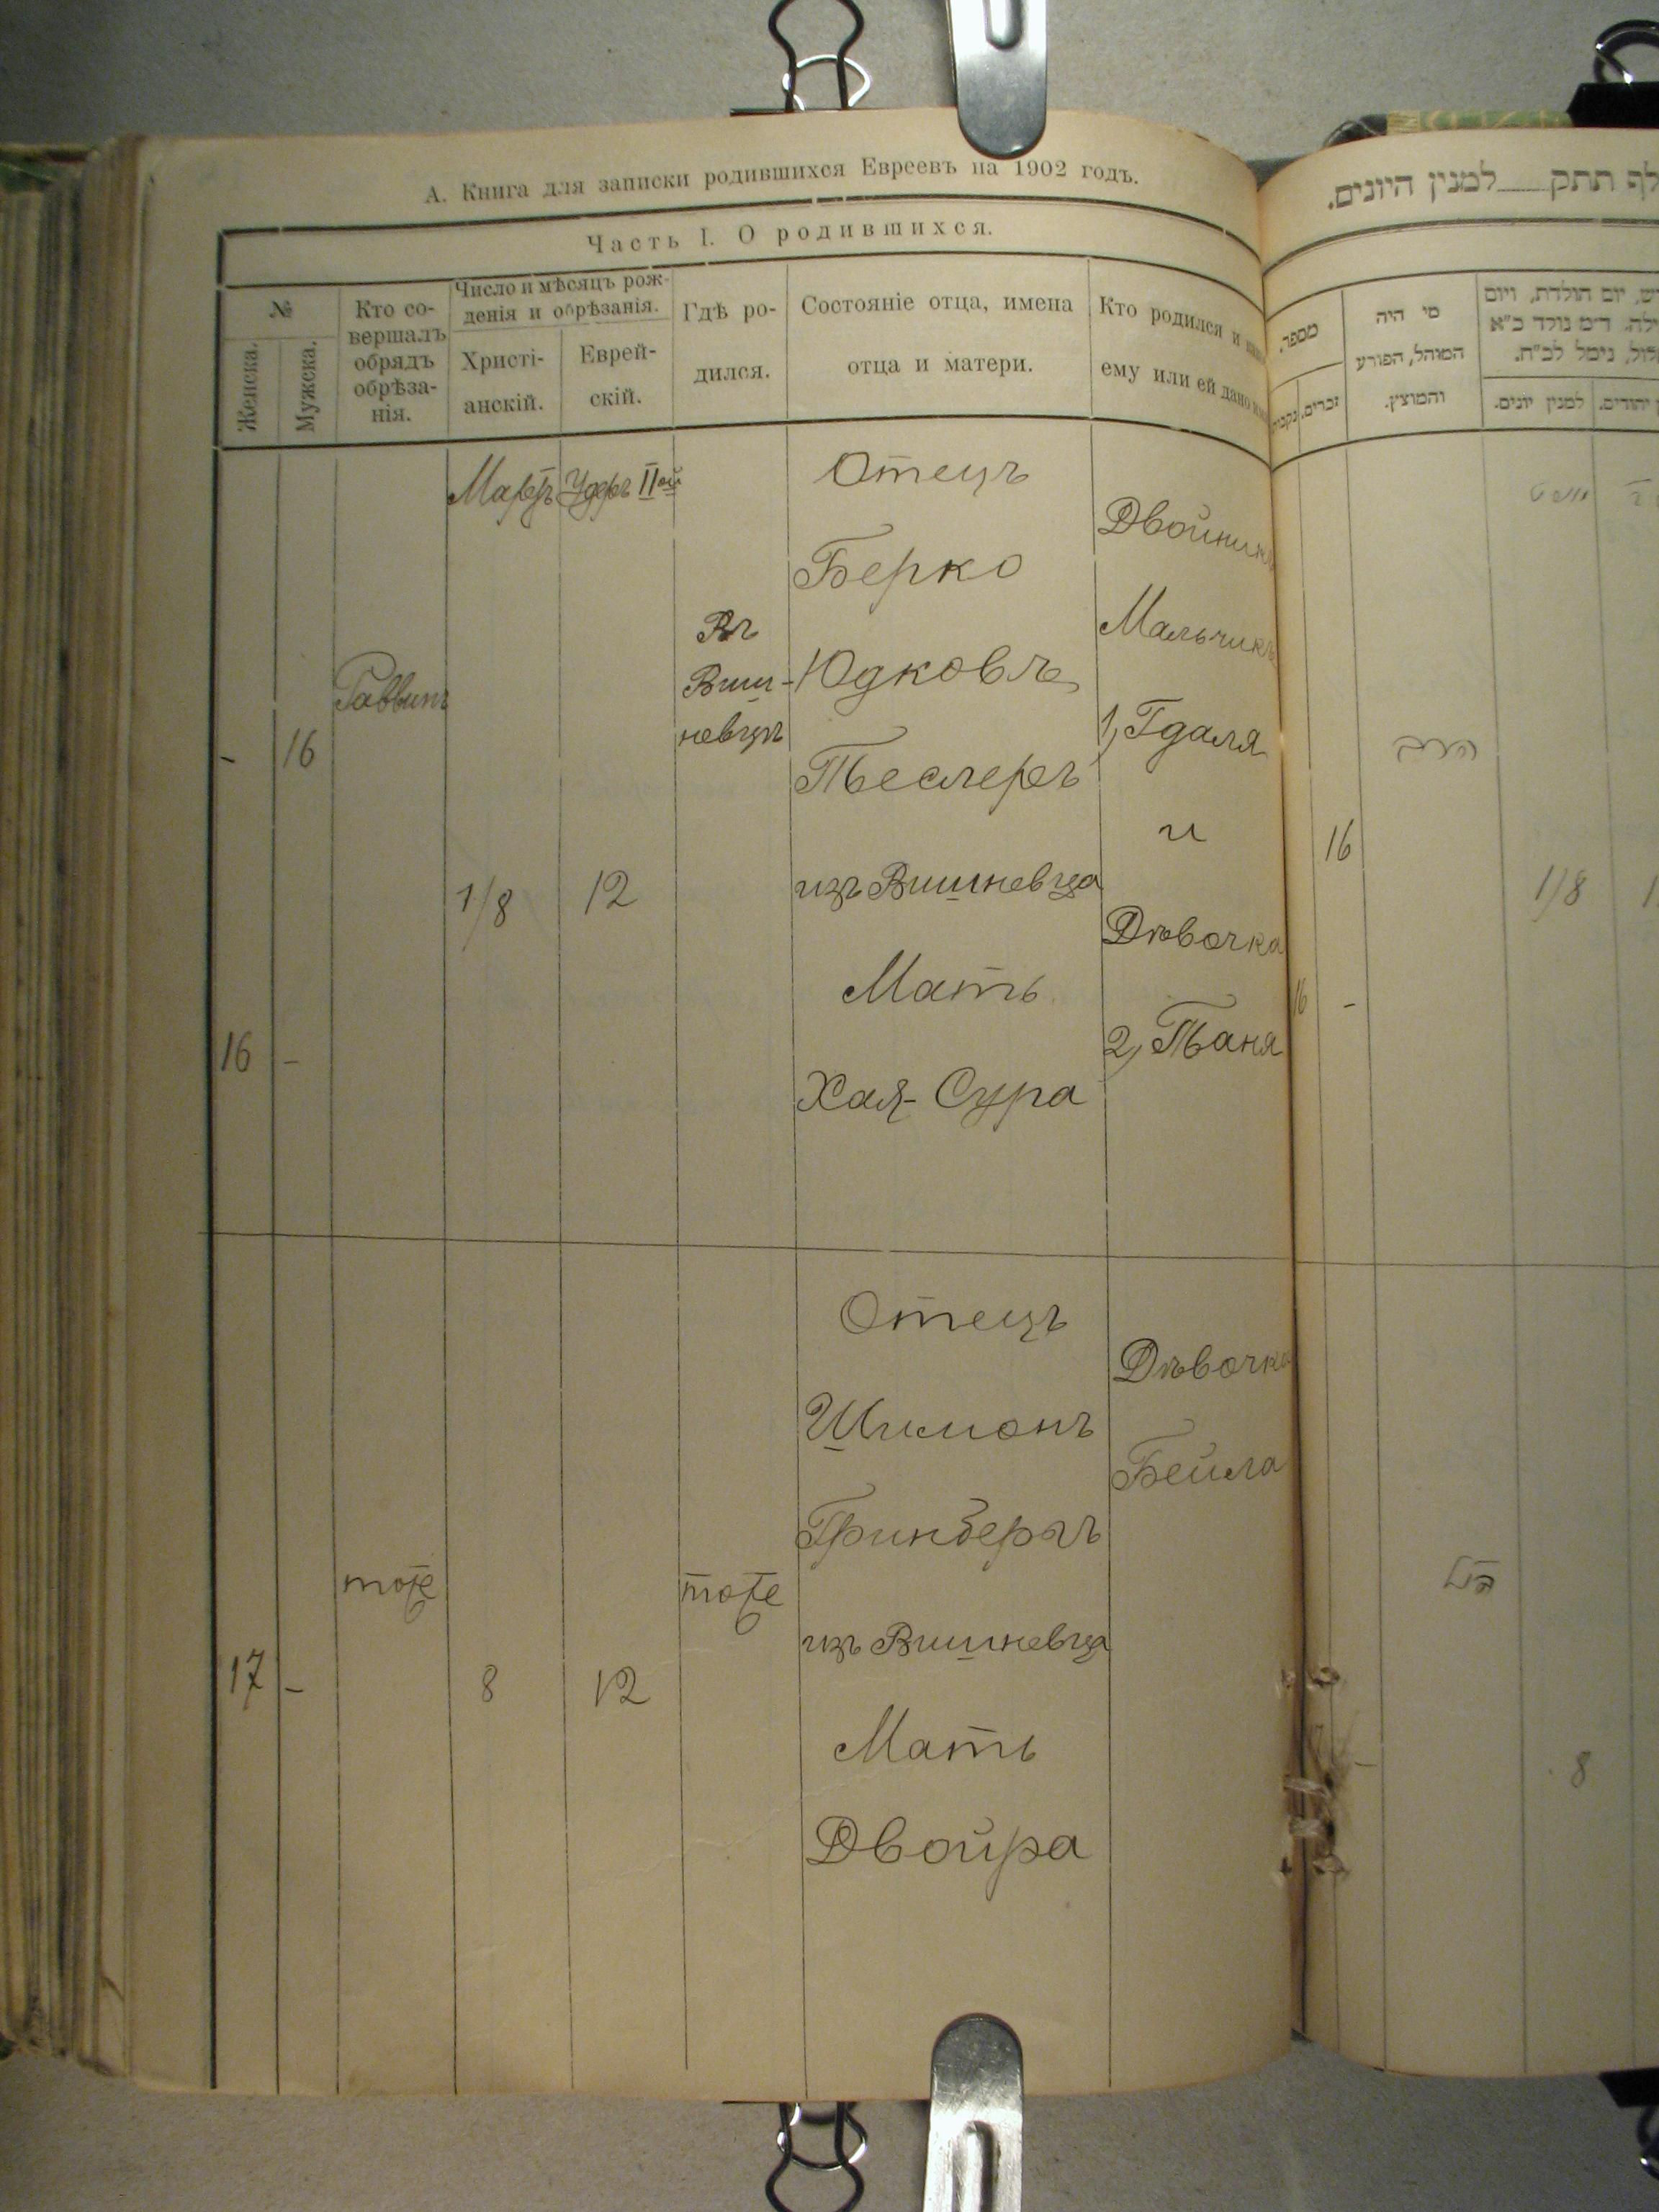 А. Книга для записки родившихся Евреевъ на 1902 годъ.
Часть I. О родившихся.
№
Женска.
Мужска.
Кто со-
вершалъ
обрядъ
обрѣза-
нія.
Число и мѣсяцъ рож-
денія и обрѣзанія.
Христі-
анскій.
Еврей-
скій.
Гдѣ ро-
дился.
Состояніе отца, имена
отца и матери.
Кто родился и
ему или ей дано
Мартъ
IIой
-
16
Раввинъ
1/8
12
Въ
Виш-
невцѣ
Отецъ
Берко
Юдковъ
Теслеръ
изъ Вишневца
Мать
Хая-Сура
Двойники
Мальчикъ
1, Гдаля
и
Дѣвочка
2, Таня
16
-
17
-
тоже
8
12
тоже
Отецъ
Шимонъ
Гринбергъ
изъ Вишневца
Мать
Двойра
Дѣвочка
Бейла
תתק למנין היונים.
מספר.
זכרים.
מי היה
המוהל, הפורע
והמוצץ.
יום הולדת, ויום
למנין יונים.
16
הרב
1/8
16
-
8